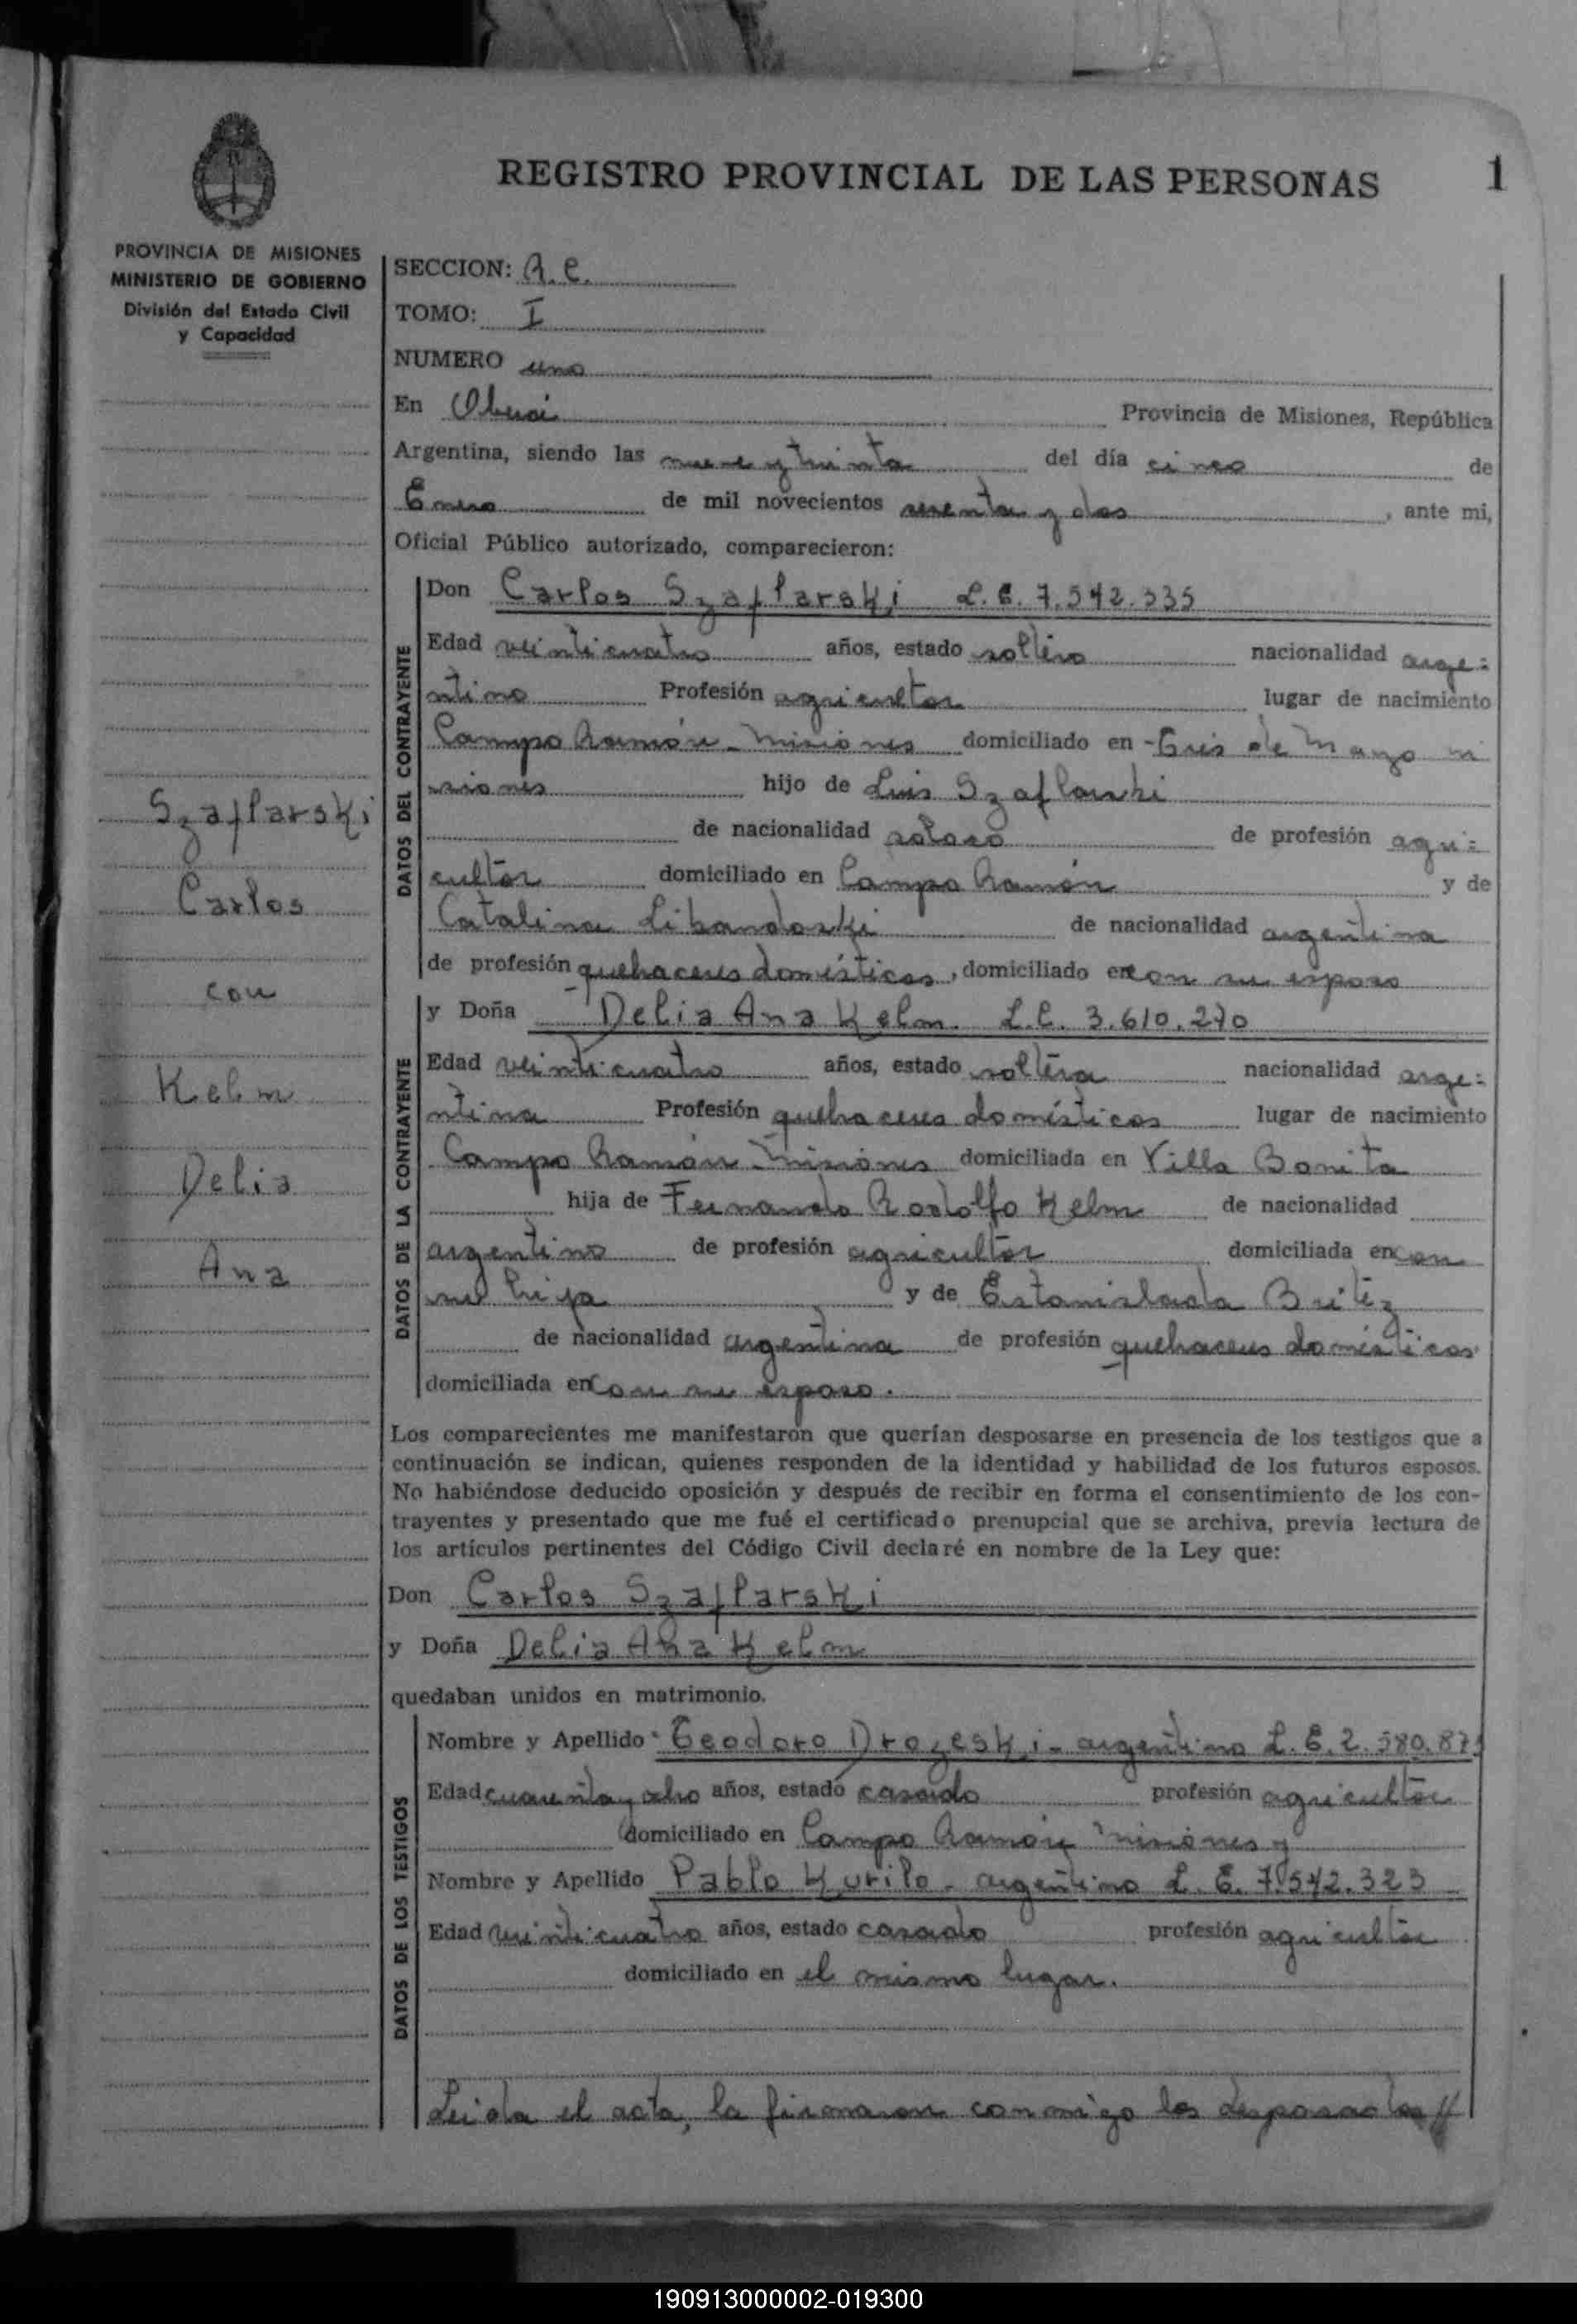 REGISTRO PROVINCIAL DE LAS PERSONAS 1
PROVINCIA DE MISIONES
MINISTERIO DE GOBIERNO
División del Estado Civil
y Capacidad
Szaflarski
Carlos
con
Kelm
Delia
Ana
SECCION: R.C.
TOMO: I
NUMERO uno
En Oberá Provincia de Misiones, República
Argentina, siendo las nueve y treinta del día cinco de
Enero de mil novecientos sesenta y dos, ante mi,
Oficial Público autorizado, comparecieron:
DATOS DEL CONTRAYENTE
Don Carlos Szaflarski L.E. 7.542.335
Edad veinticuatro años, estado soltero nacionalidad arge=
ntino Profesión agricultor lugar de nacimiento
Campo Ramón - Misiones domiciliado en Tres de Mayo Mi
siones hijo de Luis Szaflarski
de nacionalidad polaco de profesión agri=
cultor domiciliado en Campo Ramón y de
Catalina Libandoski de nacionalidad argentina
de profesión quehaceres domésticos, domiciliado en con su esposo
DATOS DE LA CONTRAYENTE
y Doña Delia Ana Kelm L.C. 3.610.270
Edad veinticuatro años, estado soltera nacionalidad arge=
ntina Profesión quehaceres domésticos lugar de nacimiento
Campo Ramón - Misiones domiciliada en Villa Bonita
hija de Fernando Rodolfo Kelm de nacionalidad
argentino de profesión agricultor domiciliada en con
su hija y de Estanislada Britez
de nacionalidad argentina de profesión quehaceres domésticos
domiciliada en con su esposo.
Los comparecientes me manifestaron que querían desposarse en presencia de los testigos que a
continuación se indican, quienes responden de la identidad y habilidad de los futuros esposos.
No habiéndose deducido oposición y después de recibir en forma el consentimiento de los con-
trayentes y presentado que me fué el certificado prenupcial que se archiva, previa lectura de
los artículos pertinentes del Código Civil declaré en nombre de la Ley que:
Don Carlos Szaflarski
y Doña Delia Ana Kelm
quedaban unidos en matrimonio.
DATOS DE LOS TESTIGOS
Nombre y Apellido Teodoro Drozeski - argentino L.E. 2.580.87
Edad cuarenta y ocho años, estado casado profesión agricultor
domiciliado en Campo Ramón Misiones y
Nombre y Apellido Pablo Kurilo - argentino L.E. 7.542.323
Edad veinticuatro años, estado casado profesión agricultor
domiciliado en el mismo lugar.
Leida el acta, la firmaron conmigo los desposados //
190913000002-019300